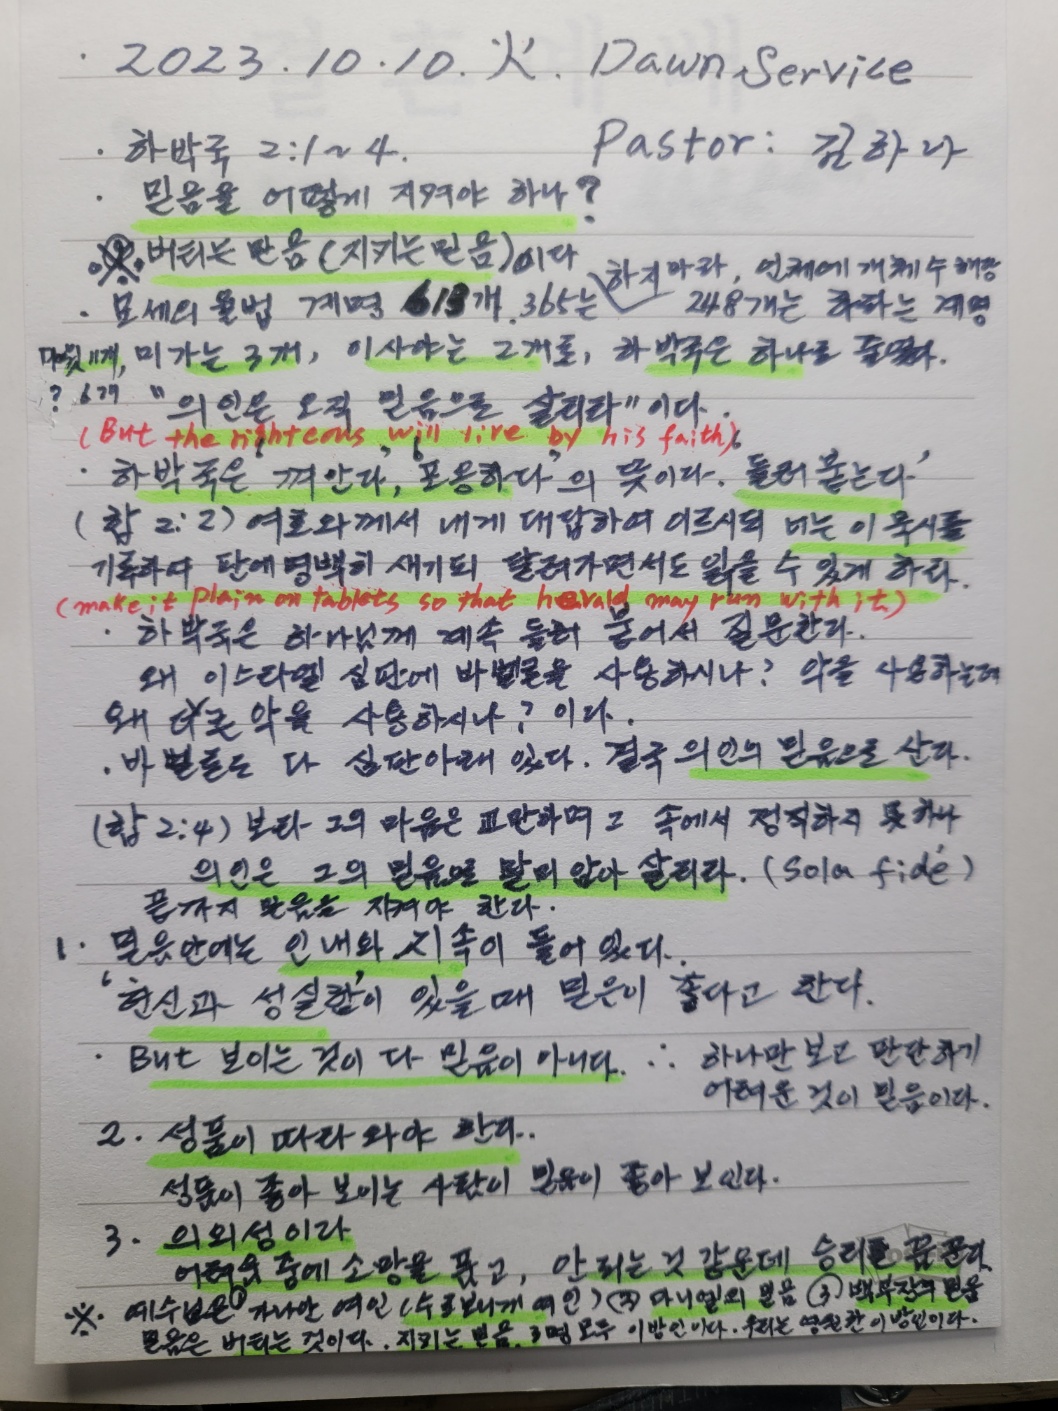 · 2023.10.10. 火. Dawn Service
· 하박국 2:1~4. Pastor: 김하나
· 믿음을 어떻게 지켜야 하나?
※. 버티는 믿음(지키는 믿음)이다
하지마라, 인체에 개체수 해당
· 모세의 율법 계명 613개. 365는 248개는 하라는 계명
다윗 11개, 미가는 3개, 이사야는 2개로, 하박국은 하나로 줄였다.
? 6개 "의인은 오직 믿음으로 살리라"이다.
(But the righteous will live by his faith)
· 하박국은 '껴안다, 포옹하다'의 뜻이다. 들러 붙는다'
(합 2:2) 여호와께서 내게 대답하여 이르시되 너는 이 묵시를
기록하여 판에 명백히 새기되 달려가면서도 읽을 수 있게 하라.
(make it plain on tablets so that herald may run with it)
· 하박국은 하나님께 계속 들러 붙어서 질문한다.
왜 이스라엘 심판에 바벨론을 사용하시나? 악을 사용하는데
왜 더 큰 악을 사용하시나? 이다.
· 바벨론도 다 심판아래 있다. 결국 의인의 믿음으로 산다.
(합 2:4) 보라 그의 마음은 교만하며 그 속에서 정직하지 못하나
의인은 그의 믿음으로 말미암아 살리라. (Sola fidé)
끝까지 믿음을 지켜야 한다.
1. 믿음안에는 인내와 지속이 들어 있다.
'헌신과 성실함'이 있을 때 믿음이 좋다고 한다.
· But 보이는 것이 다 믿음이 아니다. ∴ 하나만 보고 판단하기
어려운 것이 믿음이다.
2. 성품이 따라 와야 한다.
성품이 좋아 보이는 사람이 믿음이 좋아 보인다.
3. 의외성이라
어려움 중에 소망을 품고, 안 되는 것 같은데 승리를 꿈꾼다
※. 예수님은 ① 가나안 여인(수로보니게 여인) ② 의 믿음 ③ 백부장의 믿음
믿음은 버티는 것이다. 지키는 믿음. 3명 모두 이방인이다. 우리는 영원한 이방인이다.